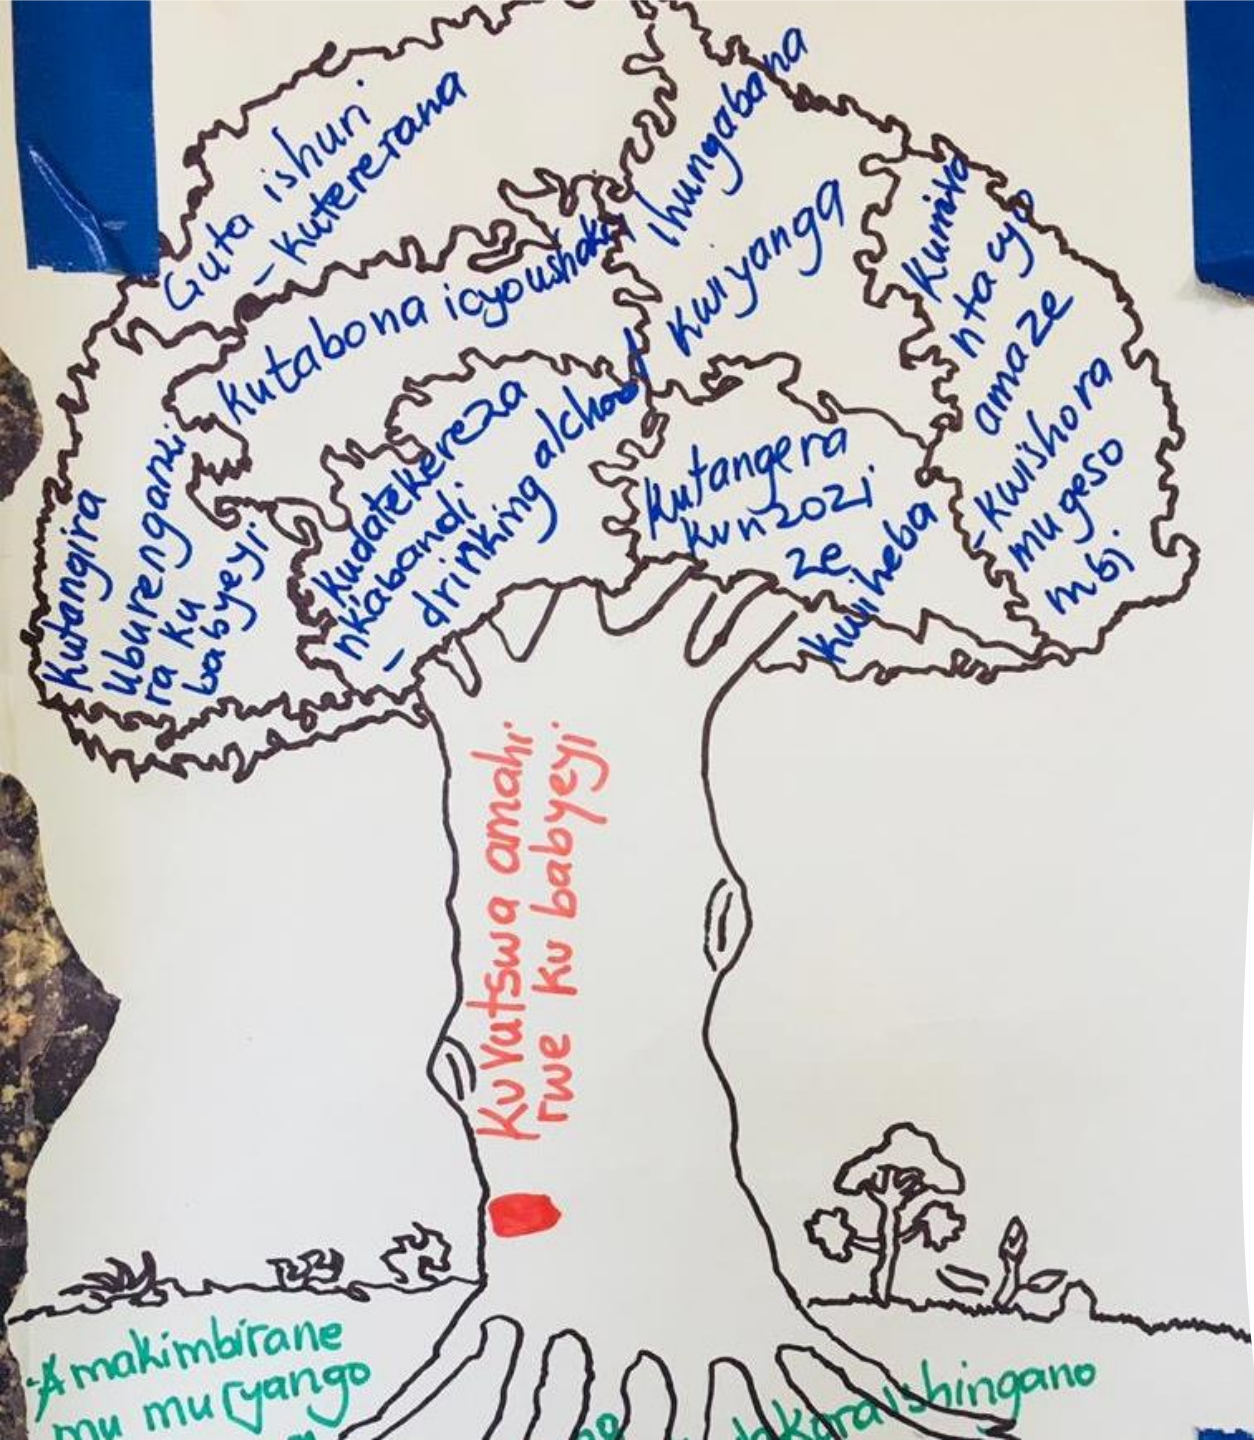 Guta ishuri
- kutererana
Kutabona icyoushaka
Ihungabana
Kwiyanga
Kumva
ntacyo
amaze
- kwishora
mu geso
mbi
Kutangira
uburenganzi
ra ku
babyeyi
kudatekereza
nkabandi
- drinking alchool
Kutangera
kun2ozi
ze
kwiheba
Kuvutswa amahi
rwe ku babyeyi
Amakimbirane
mu muryango